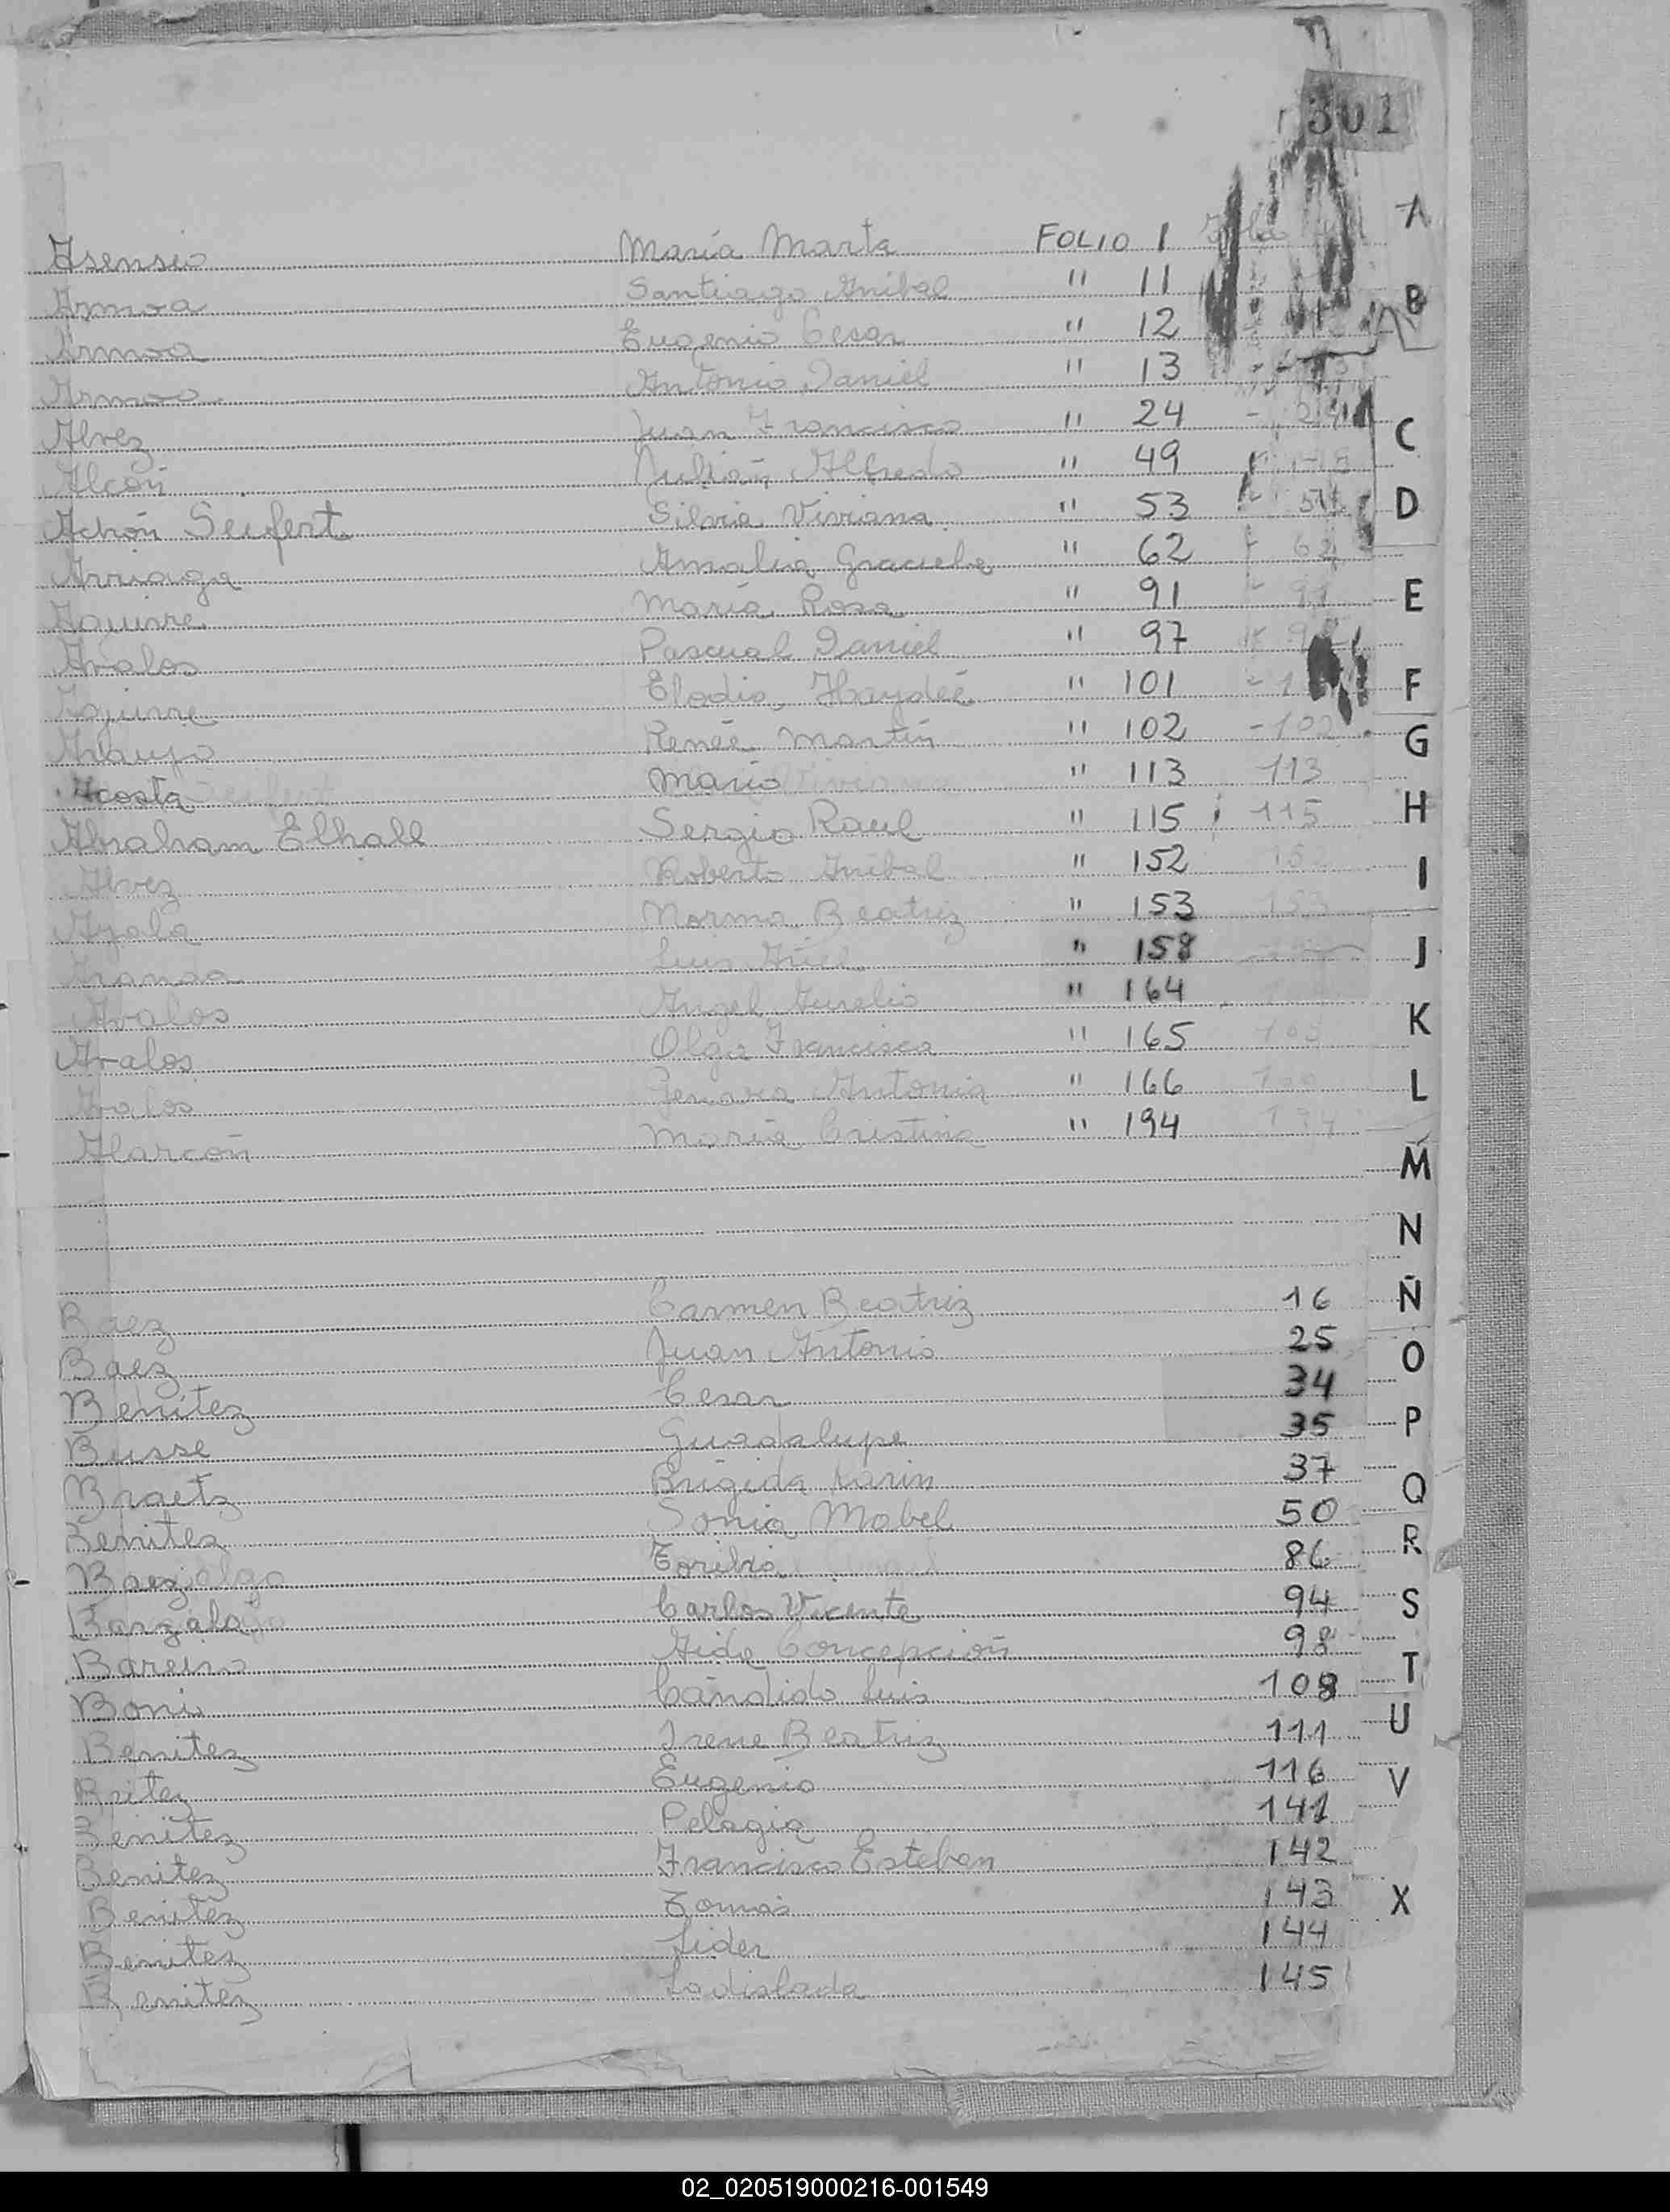 301
Asensio María Marta FOLIO 1
Armoa Santiago Anibal " 11
Armoa Eugenio Cesar " 12
Armoa Antonio Daniel " 13
Alvez Juan Francisco " 24 - 24
Alcón Julián Alfredo " 49
Achón Seufert Silvia Viviana " 53
Arriaga Amalia Graciela " 62 62
Aguirre María Rosa " 91 - 91
Avalos Pascual Daniel " 97
Aguirre Elodia Haydeé " 101
Araujo Renée Martín " 102 - 102
Acosta Mario " 113 113
Abraham Elhall Sergio Raul " 115 115
Alvez Roberto Anibal " 152 152
Ayala Norma Beatriz " 153 153
Luis " 158
Avalos Angel Aurelio " 164
Avalos Olga Francisca " 165 165
Avalos Genara Antonia " 166
Alarcón María Cristina " 194 194
Baez Carmen Beatriz 16
Baez Juan Antonio 25
Benitez Cesar 34
Busse Guadalupe 35
Braetz Brígida Karin 37
Benitez Sonia Mabel 50
Baez Toribia 86
Carlos Vicente 94
Bareiro Aide Concepción 98
Boni Cándido Luis 108
Benitez Irene Beatriz 111
Britez Eugenio 116
Benitez Pelagia 141
Benitez Francisco Esteban 142
Benitez Tomás 143
Benitez Lider 144
Benitez Ladislada 145
A
B
C
D
E
F
G
H
I
J
K
L
M
N
Ñ
O
P
Q
R
S
T
U
V
X
02_020519000216-001549